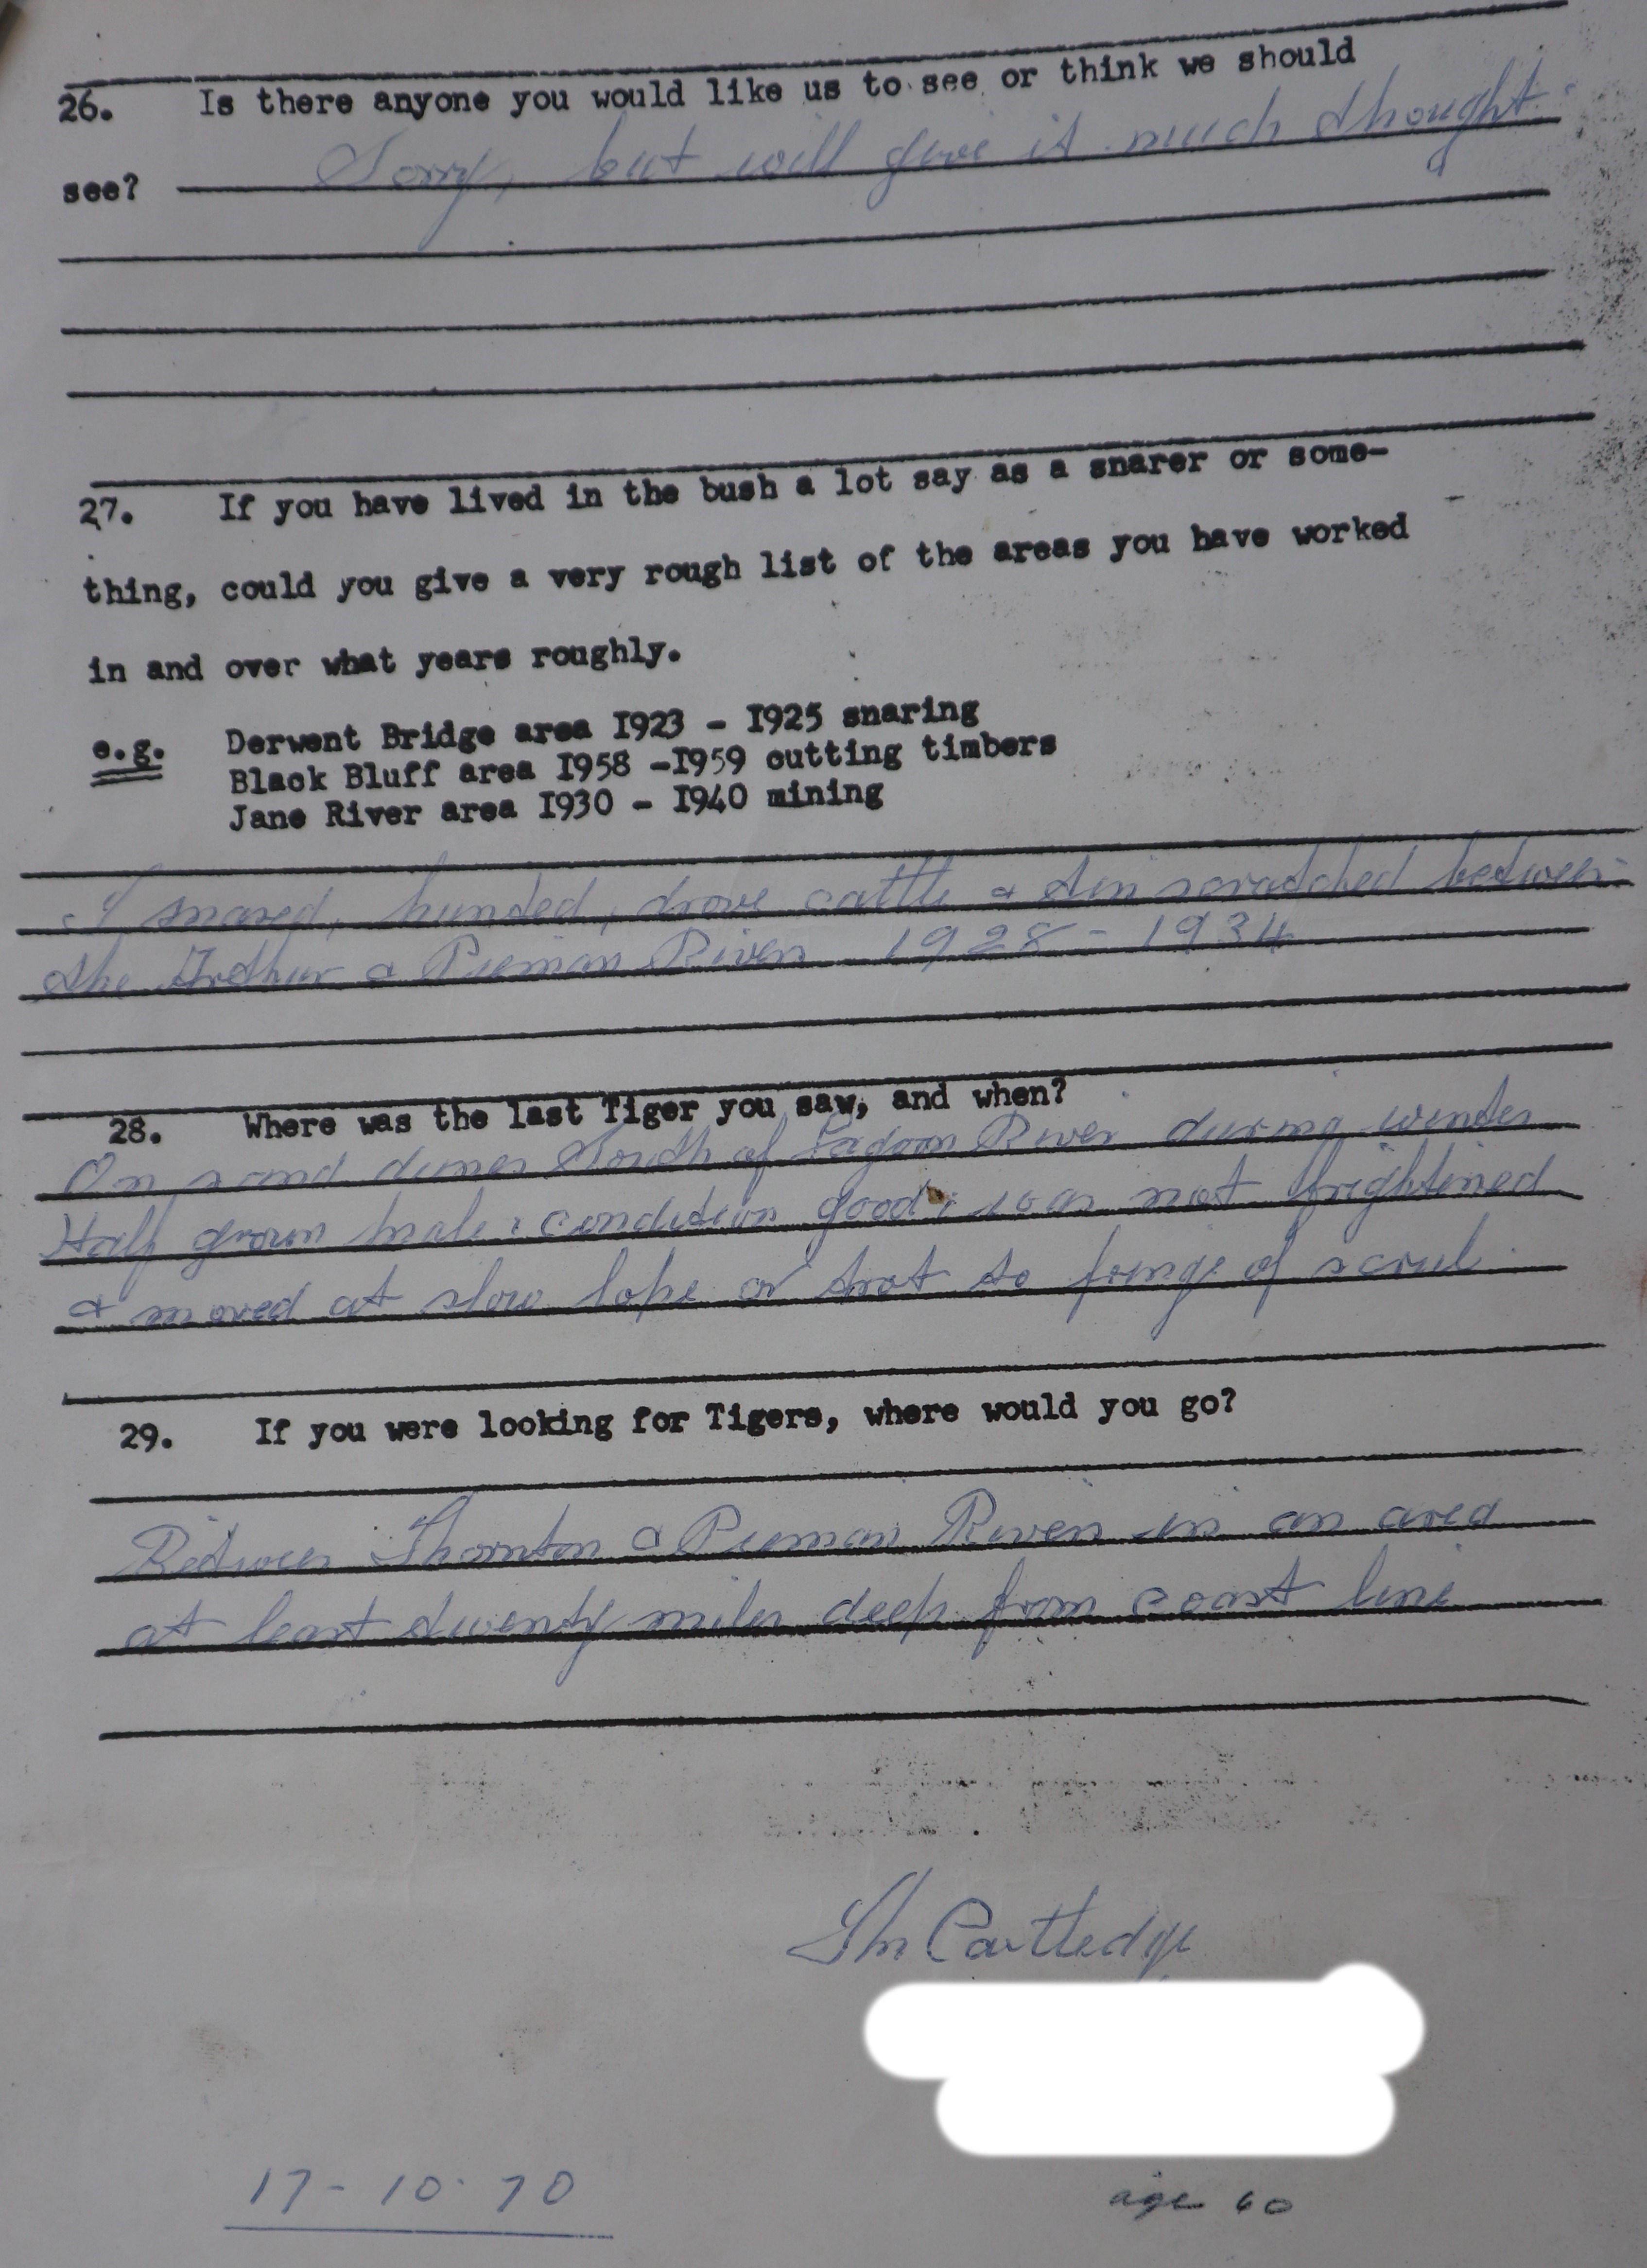 26. Is there anyone you would like us to see or think we should
see? Sorry, but will give it much thought.
27. If you have lived in the bush a lot say as a snarer or some-
thing, could you give a very rough list of the areas you have worked
in and over what years roughly.
e.g. Derwent Bridge area I923 - I925 snaring
Black Bluff area I958 -I959 cutting timbers
Jane River area I930 - I940 mining
I snared, hunted, drove cattle & tin scratched between
the Arthur & Pieman River 1928 - 1934
28. Where was the last Tiger you saw, and when?
On sand dunes South of Lagoon River during winter
Half grown male: condition good: was not frightened
& moved at slow lope or trot to fringe of scrub.
29. If you were looking for Tigers, where would you go?
Between Thornton & Pieman River in an area
at least twenty miles deep from coast line
Cartledge
17-10-70
age 60